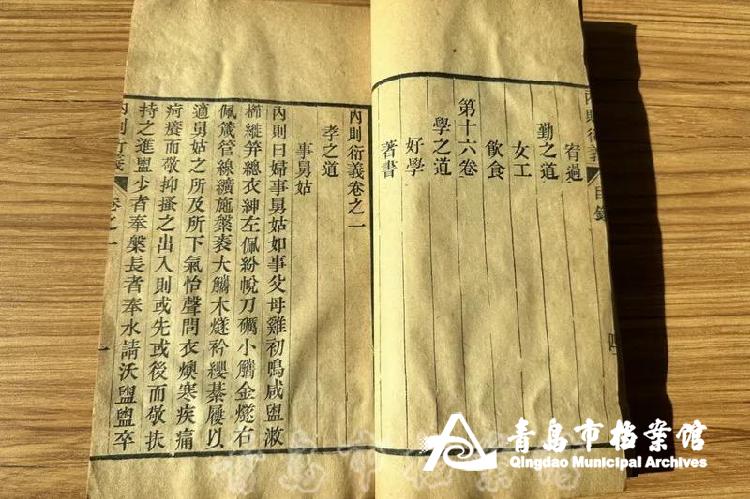 內則衍義
目錄
宥過
勤之道
女工
飲食
第十六卷
學之道
好學
著書
內則衍義卷之一
孝之道
事舅姑
內則曰婦事舅姑如事父母雞初鳴咸盥漱
櫛縰笄總衣紳左佩紛帨刀礪小觿金燧右
佩箴管線纊施縏袠大觿木燧衿纓綦屨以
適舅姑之所及所下氣怡聲問衣燠寒疾痛
疴癢而敬抑搔之出入則或先或後而敬扶
持之進盥少者奉槃長者奉水請沃盥盥卒
內則衍義
卷之一
一
青島市档案馆
Qingdao Municipal Archives